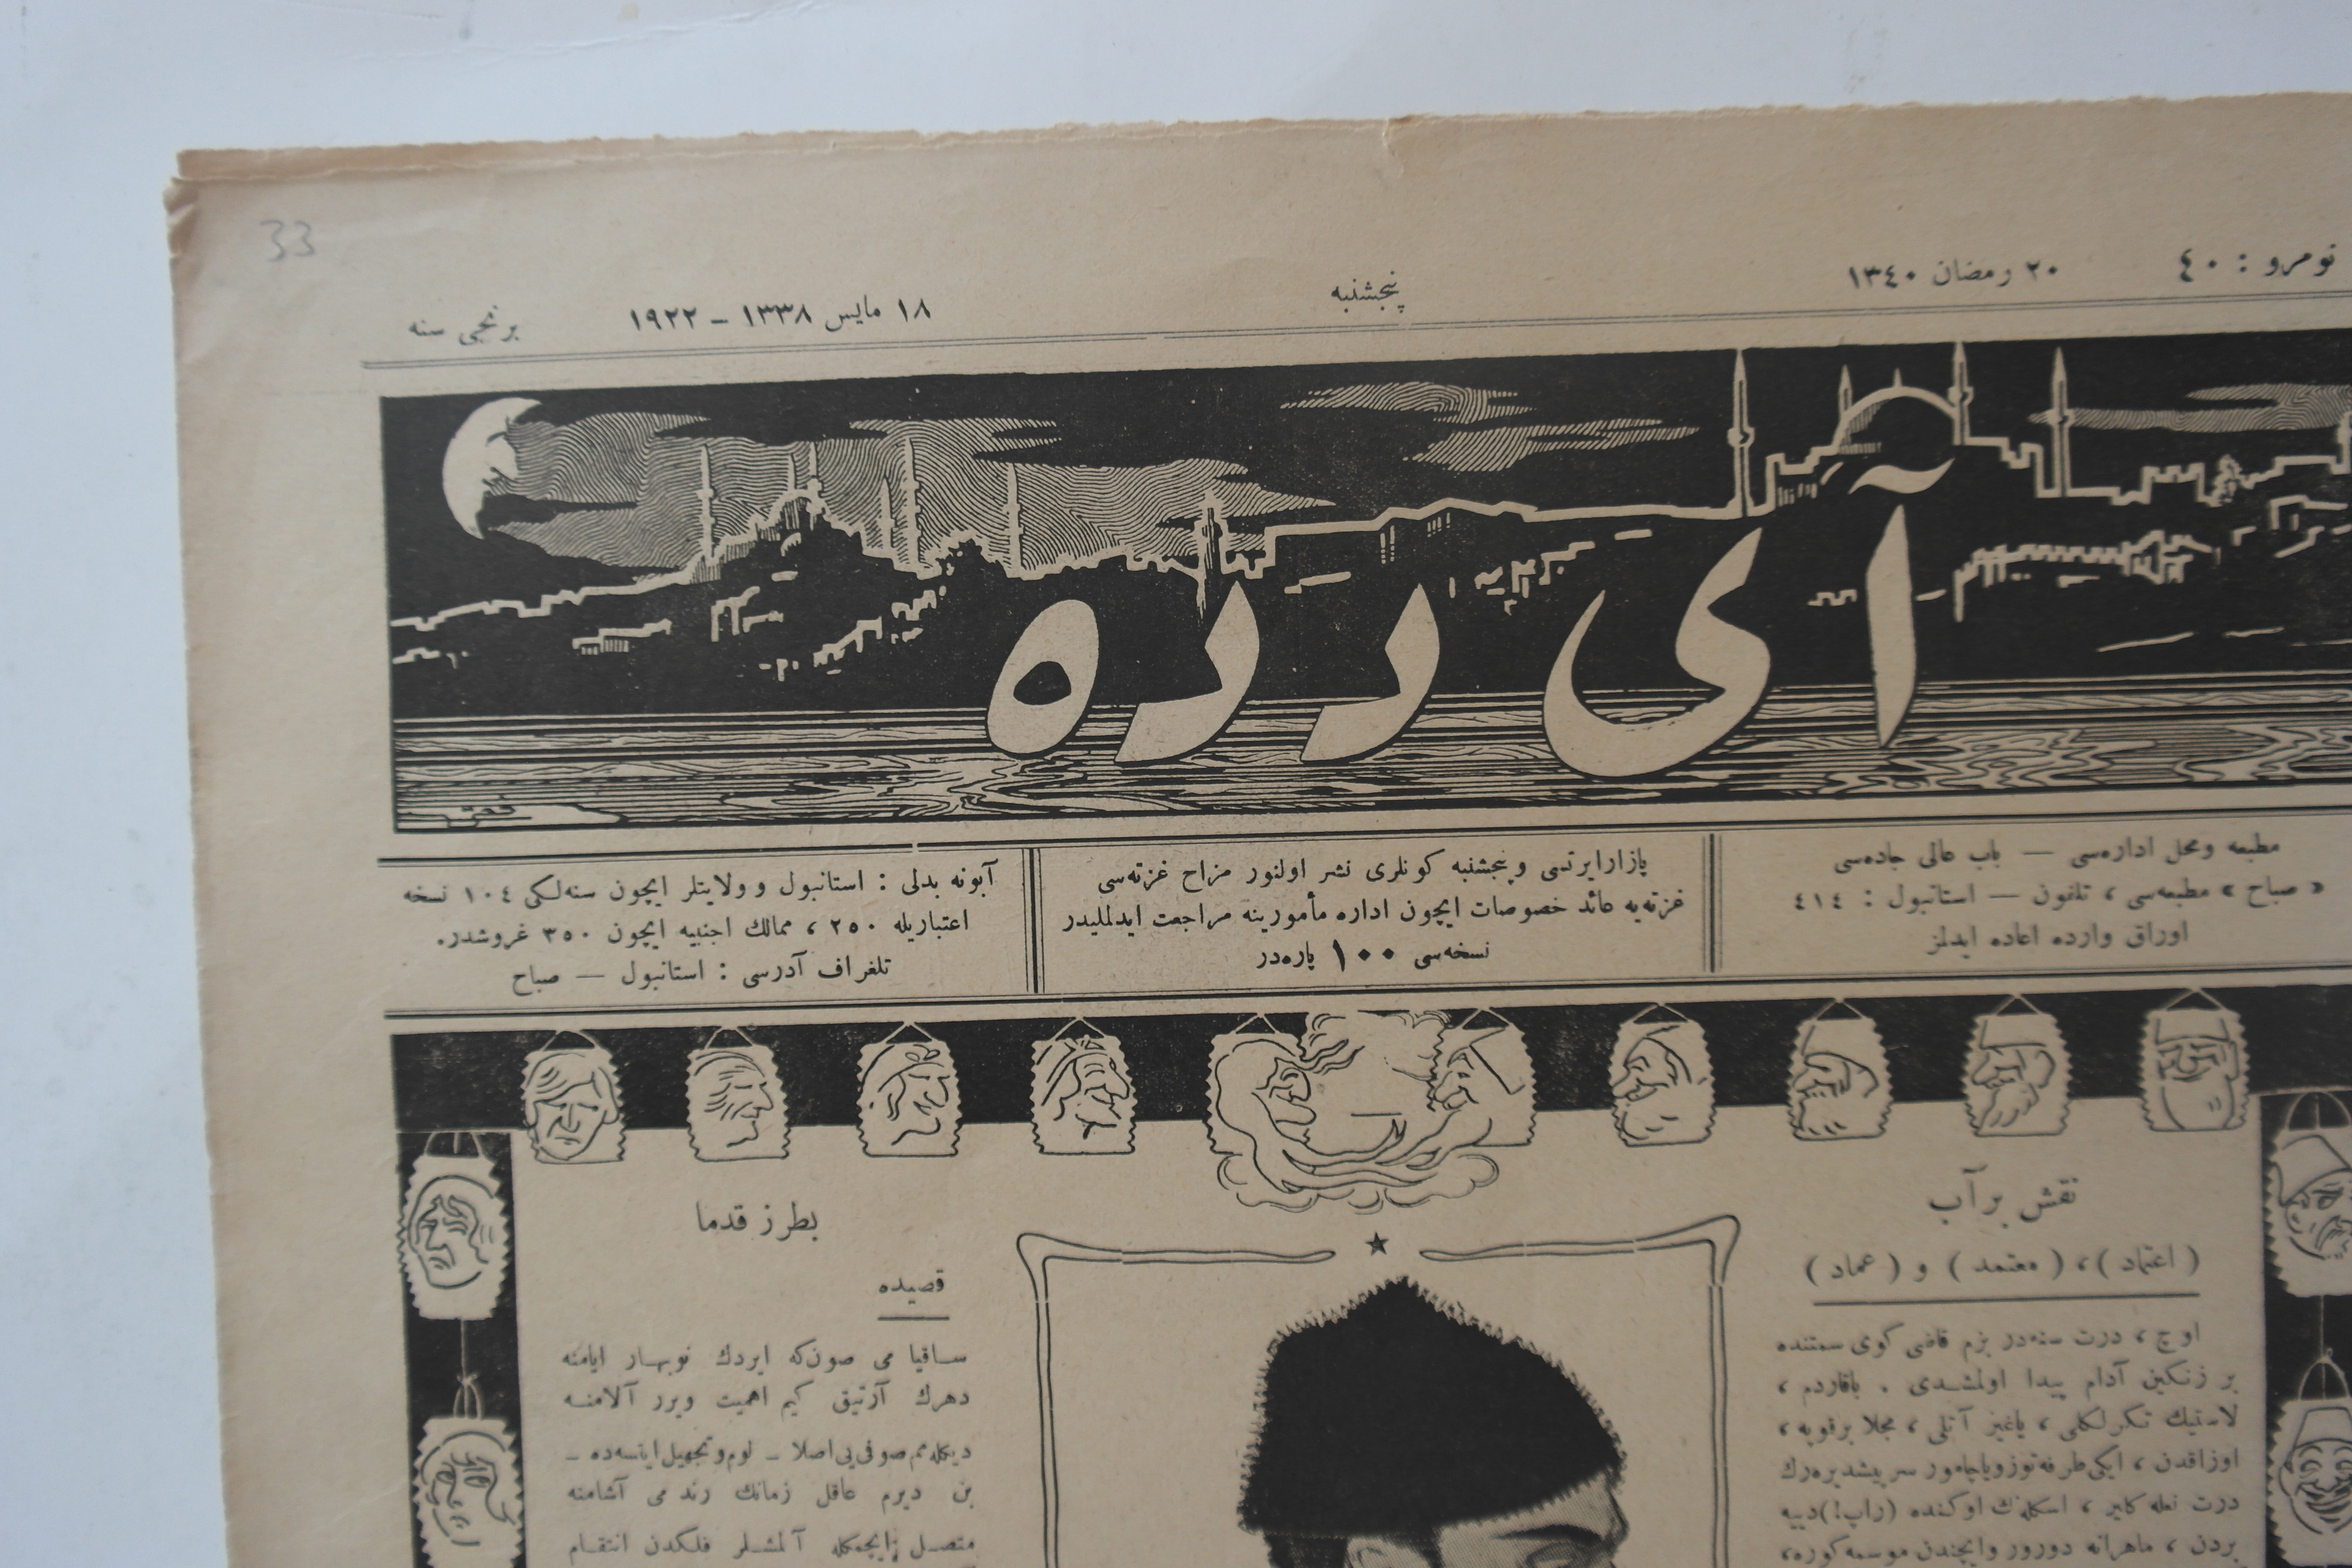 33
نومرو : ٤٠
٢٠ رمضان ١٣٤٠
پنجشنبه
١٨ مایس ١٣٣٨ – ١٩٢٢
برنجی سنه
آی دده
مطبعه ومحل اداره‌سی — باب عالی جاده‌سی
« صباح » مطبعه‌سی ، تلفون — استانبول : ٤١٤
اوراق وارده اعاده ایدلمز
پازارایرتسی وپنجشنبه كونلری نشر اولنور مزاح غزته‌سی
غزته‌یه عائد خصوصات ایچون اداره مأمورینه مراجعت ایدلملیدر
نسخه‌سی ١٠٠ پاره‌در
آبونه بدلی : استانبول وولایتلر ایچون سنه‌لكی ١٠٤ نسخه
اعتباریله ٢٥٠ ، ممالك اجنبیه ایچون ٣٥٠ غروشدر.
تلغراف آدرسی : استانبول — صباح
نقش برآب
( اعتماد ) ، ( معتمد ) و ( عماد )
اوچ ، درت سنه‌در بزم قاضی كوی سمتنده
بر زنكین آدام پیدا اولمشدی . باقاردم ،
لاستیك تكرلكلی ، یاغیز آتلی ، مجلا برقوپه ،
اوزاقدن ، ایكی طرفه توزویاچامور سرپیشدیره‌رك
درت نعله كلیر ، اسكله‌نك اوكنده (راپ!) دییه
بردن ، ماهرانه دورور وایچندن موسمه كوره ،
بطرز قدما
قصیده
ساقیا می صون‌كه ایردك نوبهار ایامنه
دهرك آرتیق كیم اهمیت ویرر آلامنه
دیكله‌مم صوفی‌یی اصلا – لوم وتجهیل ایتسه‌ده –
بن دیرم عاقل زمانك رند می آشامنه
متصل ایچمكله آلمشلر فلكدن انتقام